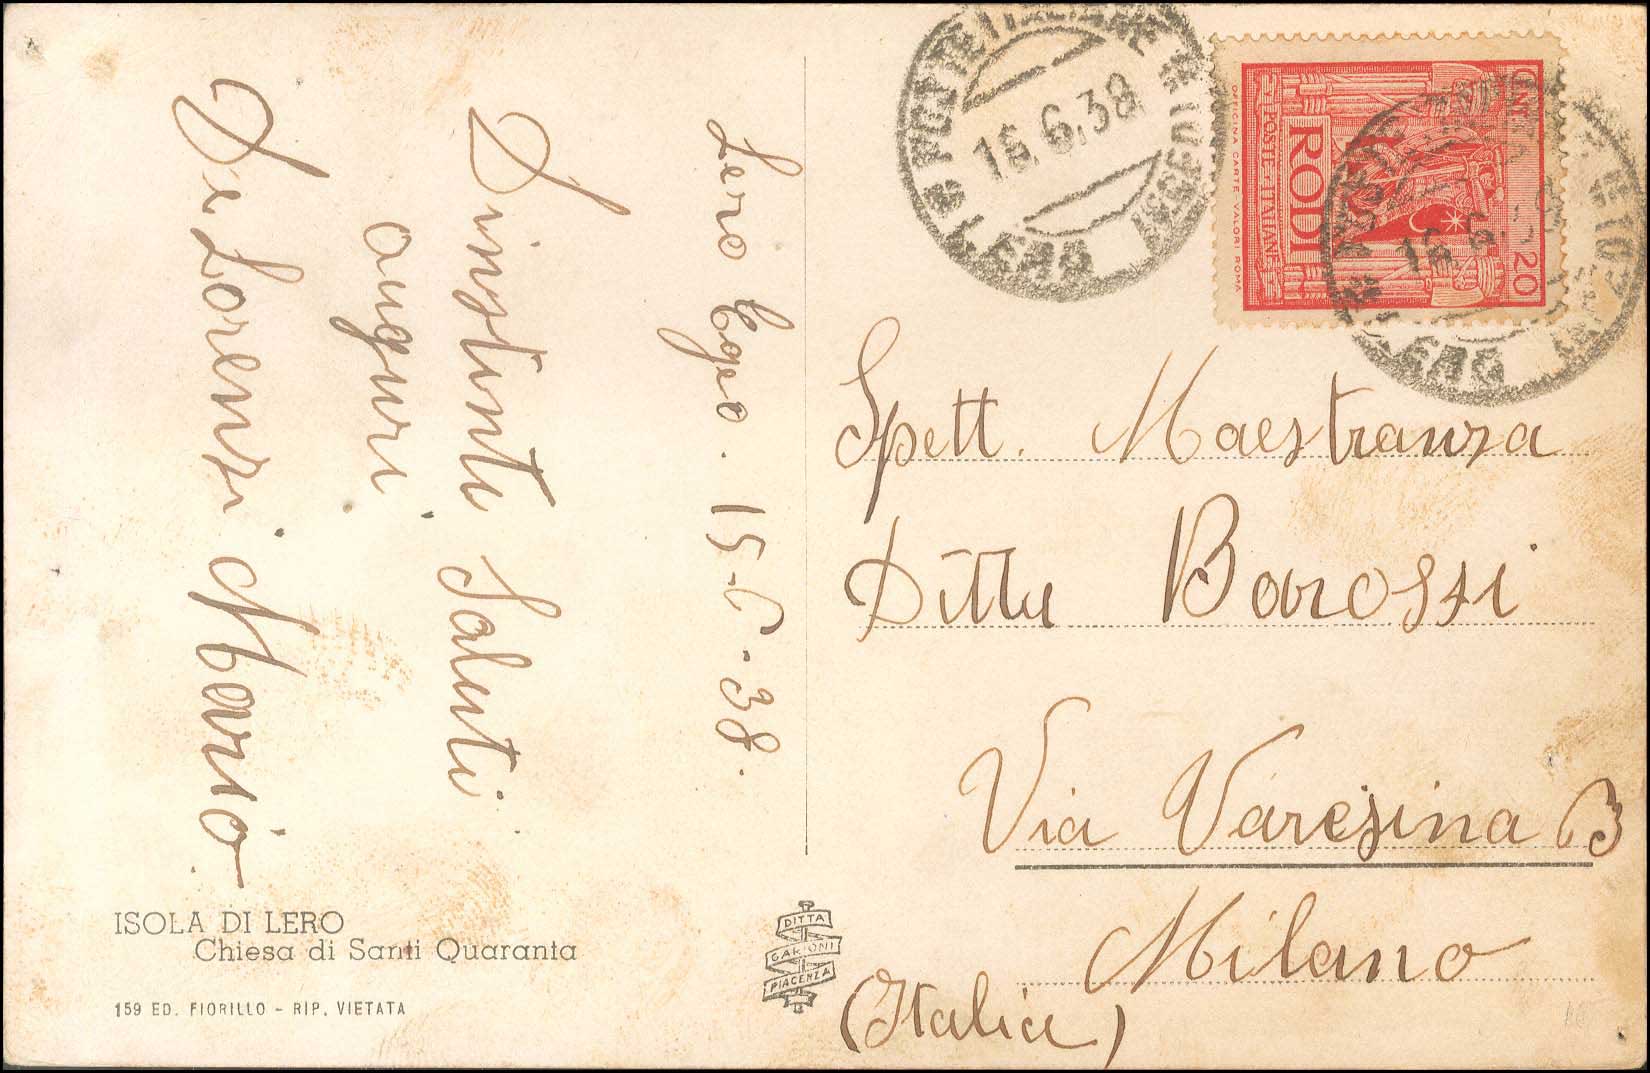 Lero Egeo. 15-6-38.
Distinti Saluti
auguri
De Lorenzi Mario
ISOLA DI LERO
Chiesa di Santi Quaranta
159 ED. FIORILLO - RIP. VIETATA
DITTA
GARIONI
PIACENZA
16.6.38
LERO
CENT. 20
POSTE ITALIANE
RODI
OFFICINA CARTE VALORI ROMA
16.6.38
LERO
Spett. Maestranza
Ditta Barossi
Via Varesina 3
Milano
(Italia)